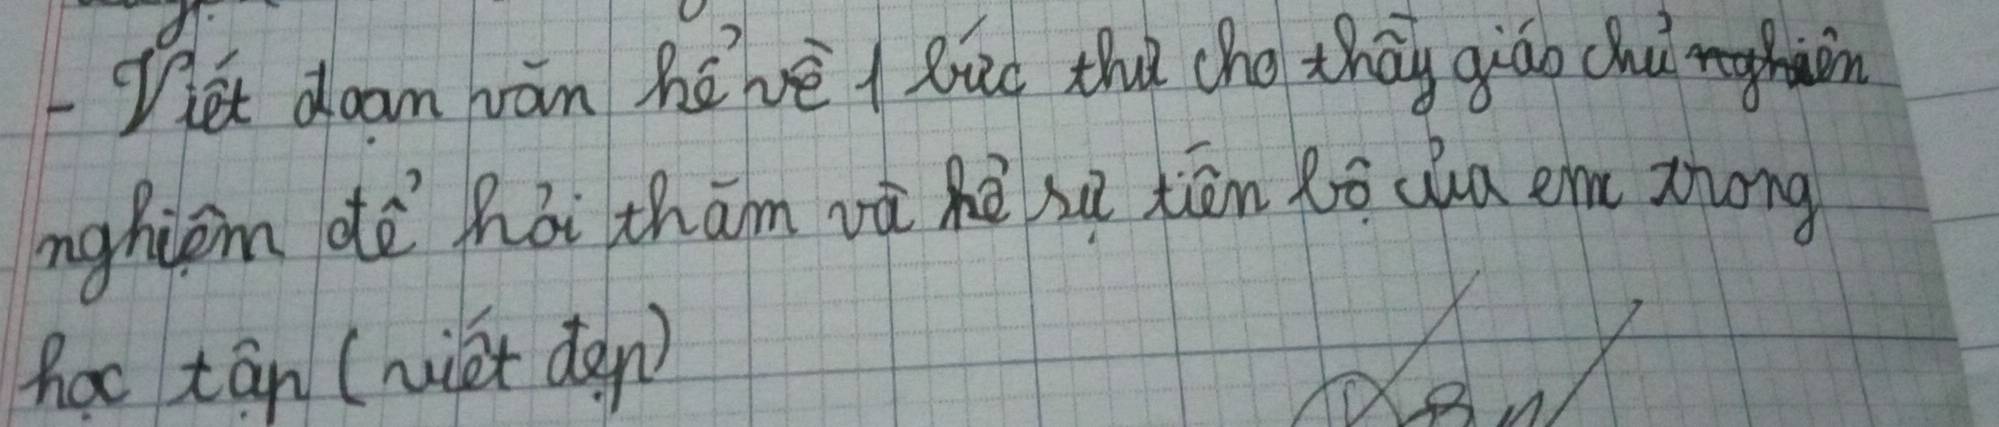 - Viết đoạn văn kể về 1 bức thư cho thầy giáo chủ nghiên
nghiệm để hỏi thăm và kể sự tiến bộ của em trong
học tập (viết đẹp)